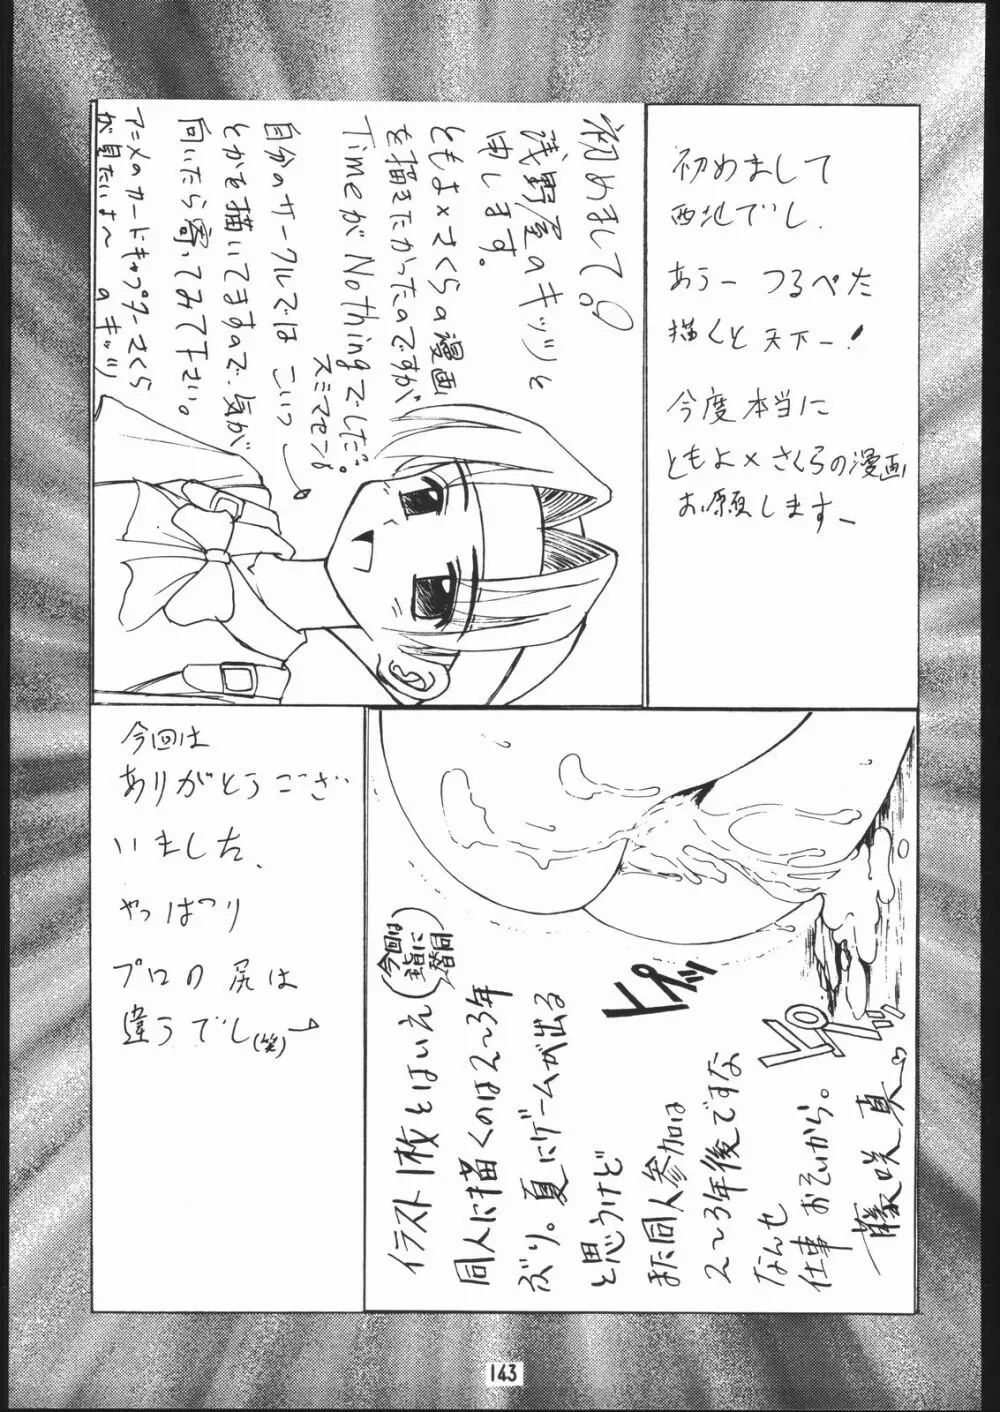 初めまして
西地でし、
あうー つるぺた
描くと天下一!
今度本当に
ともよ×さくらの漫画
お願しますー
初めまして。
浅野屋のキッツと
申します。
ともよ×さくらの漫画
を描きたかったのですが
TimeがNothingでした。
スミマセン。
自分のサークルでは こいつ→
とかを描いてますので、気が
向いたら寄ってみて下さい。
アニメのカードキャプターさくら
が見たいよ～ のキッツ
今回は
ありがとうござ
いました、
やっぱつり
プロの尻は
違うでし(笑)
イラスト1枚とはいえ
(今回は
主旨に
賛同)
同人に描くのは2～3年
ぶり。夏にゲームが出る
と思うけど
また同人参加は
2～3年後ですな
なんせ
仕事おそいから。
藤咲真
ピプッ
ピプッ
143